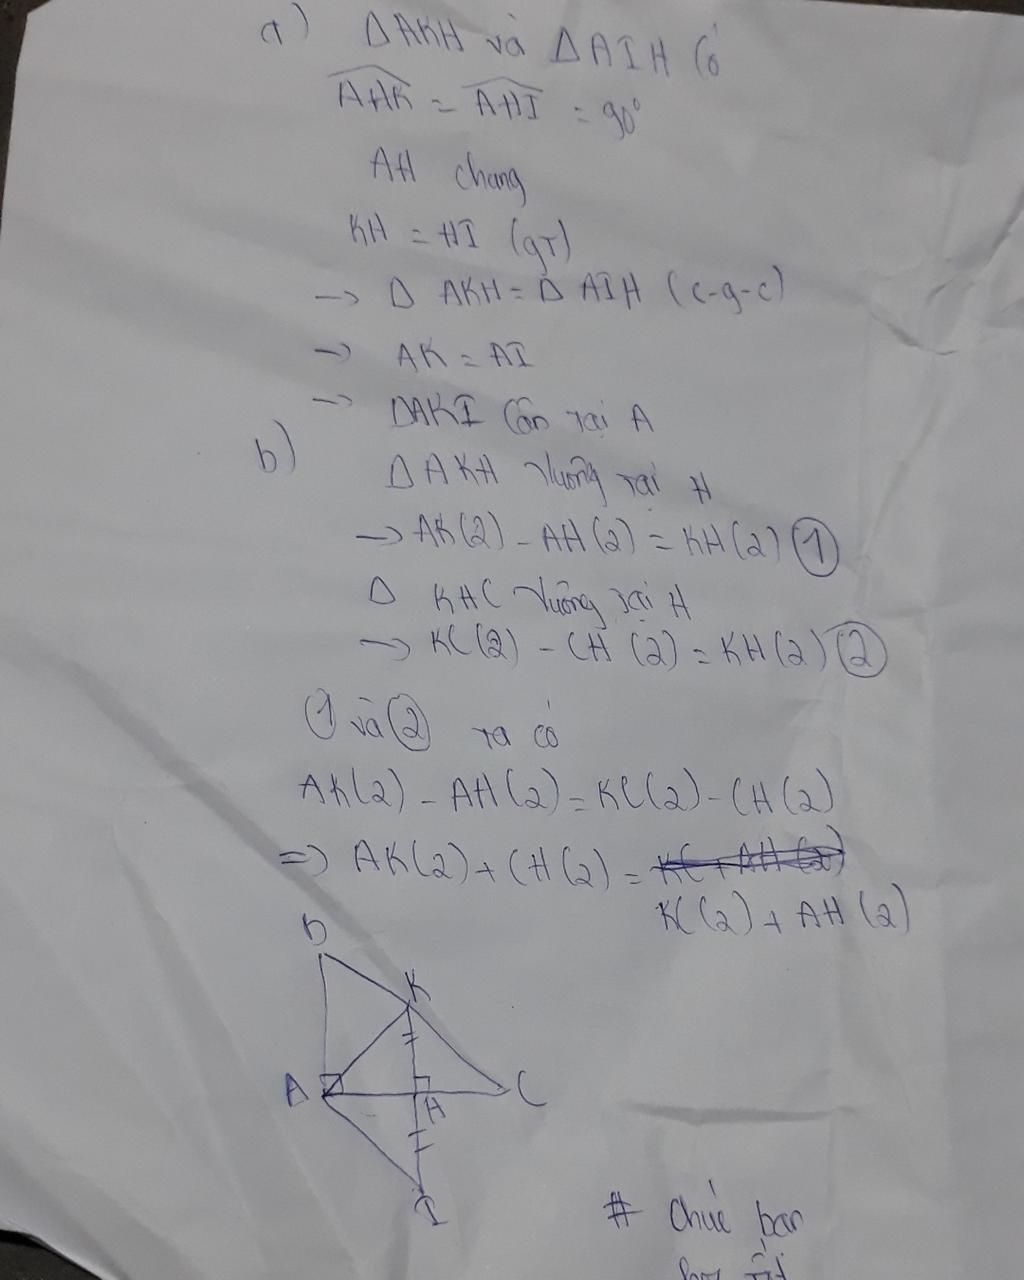 a) ΔAKH và ΔAIH có
AHK = AHI = 90°
AH chung
KH = HI (gt)
→ Δ AKH = Δ AIH (c-g-c)
→ AK = AI
→ ΔAKI cân tại A
b)
ΔAKH vuông tại H
→ AK(2) - AH(2) = KH(2) ①
Δ KHC vuông tại H
→ KC(2) - CH(2) = KH(2) ②
① và ② ta có
AK(2) - AH(2) = KC(2) - CH(2)
=> AK(2) + CH(2) =
KC(2) + AH(2)
B
K
A
H
C
I
# Chúc bạn